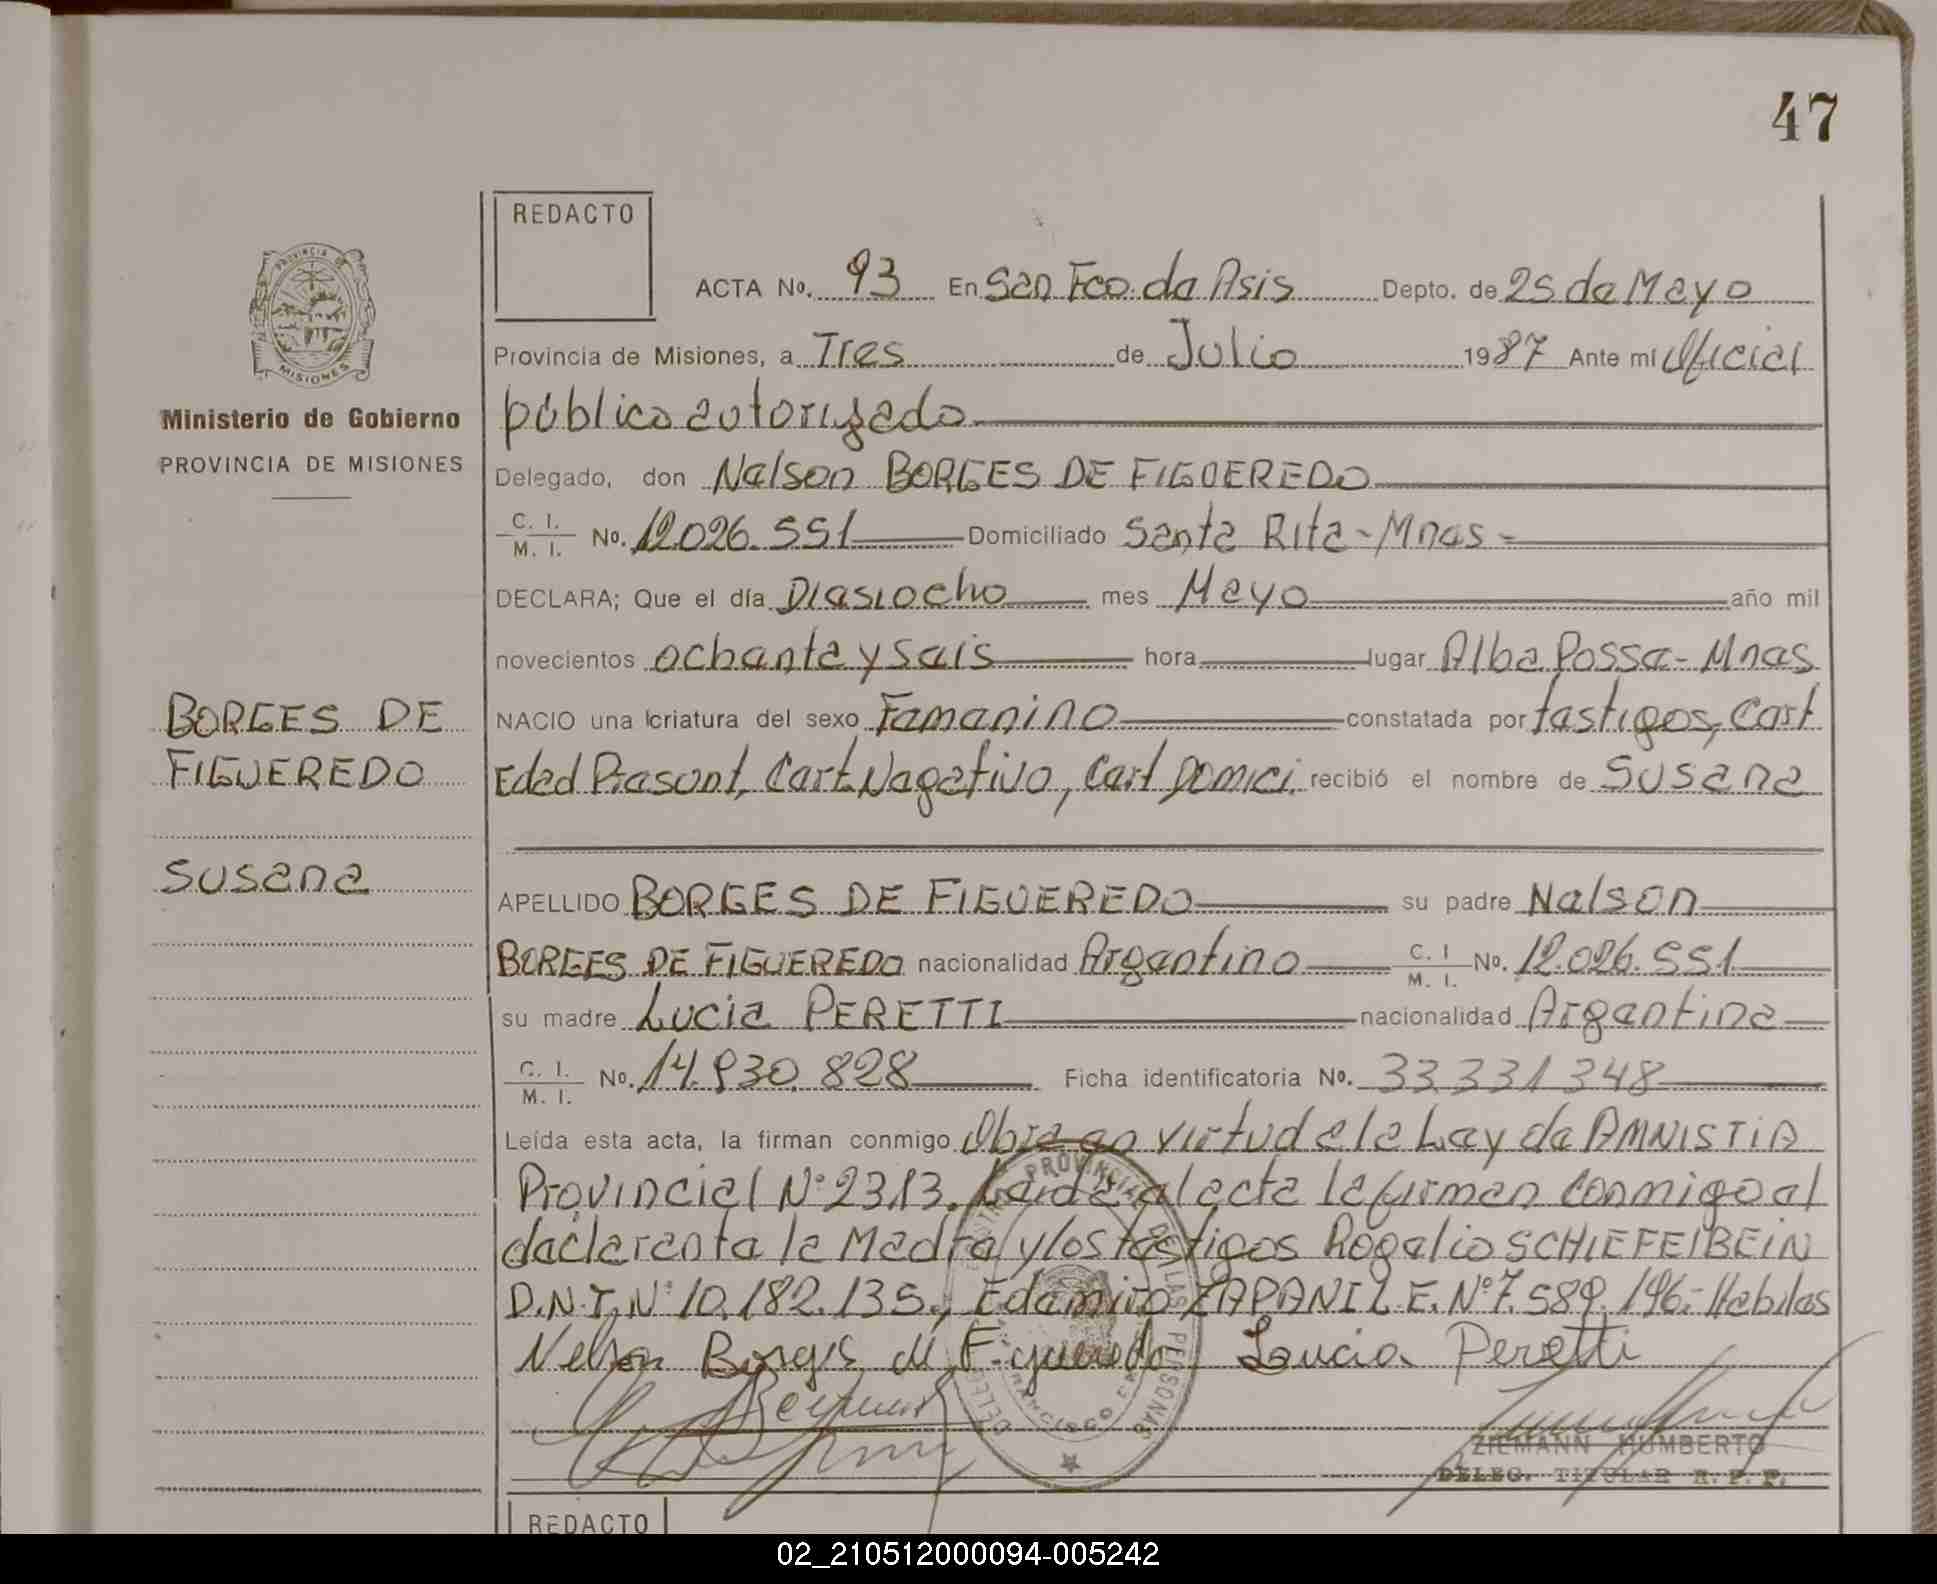 47
REDACTO
PROVINCIA DE
MISIONES
Ministerio de Gobierno
PROVINCIA DE MISIONES
BORGES DE
FIGUEREDO
Susana
ACTA No. 93 En San Fco. de Asis Depto. de 25 de Mayo
Provincia de Misiones, a Tres de Julio 1987 Ante mí Oficial
público autorizado
Delegado, don Nelson BORGES DE FIGUEREDO
C. I. M. I. No. 12.026.551 Domiciliado Santa Rita - Mnes -
DECLARA; Que el día Diesiocho mes Mayo año mil
novecientos ochenta y seis hora lugar Alba Posse - Mnes
NACIO una criatura del sexo Femenino constatada por testigos, Cert
Edad Presunt, Cert. Negativo, Cert Domici. recibió el nombre de Susana
APELLIDO BORGES DE FIGUEREDO su padre Nelson
BORGES DE FIGUEREDO nacionalidad Argentino C. I M. I. No. 12.026.551
su madre Lucia PERETTI nacionalidad Argentina
C. I. M. I. No. 14.930.828 Ficha identificatoria No. 33.331.348
Leída esta acta, la firman conmigo Obra en virtud a la Ley de AMNISTIA
Provincial N° 2313. Leida el acta la firman conmigo el
declarante la Madre y los testigos Rogelio SCHIEFEIBEIN
D.N.I. N° 10.182.135., Edemiro ZAPANI L.E. N° 7.589.196.- Habiles
Nelson Borges de Figueredo Lucia Peretti
PROVINCIAL DE LAS PERSONAS
ZIEMANN HUMBERTO
DELEG. TITULAR R. P. P.
REDACTO
02_210512000094-005242